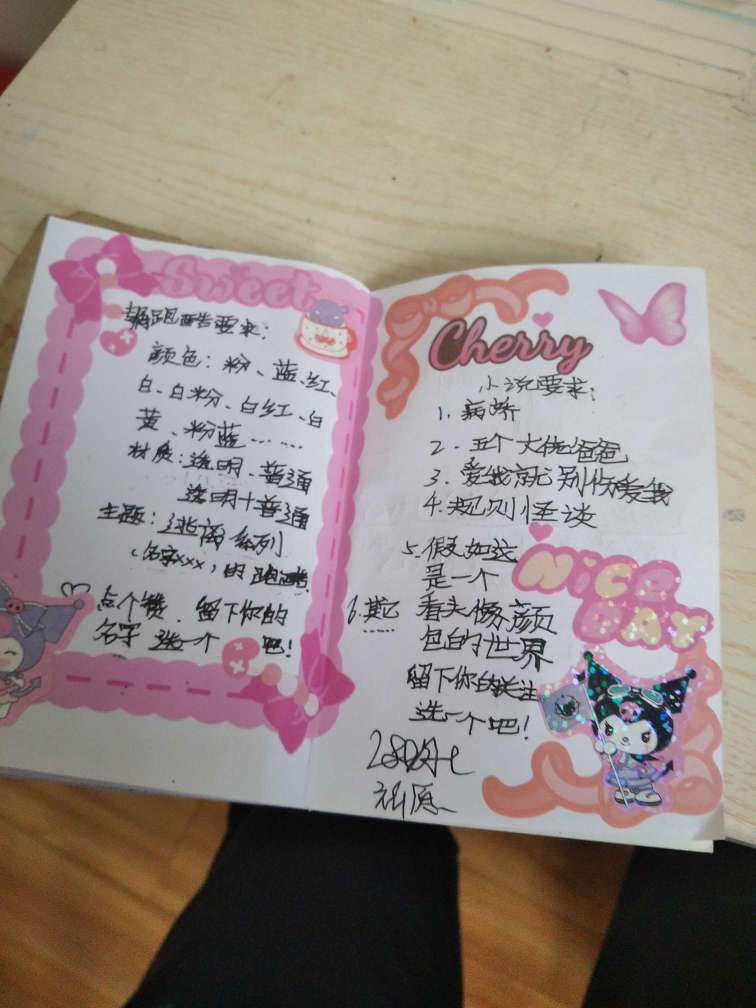 Sweet
跑酷要求：
颜色：粉、蓝、红、
白、白粉、白红、白
黄、粉蓝……
材质：透明、普通
透明+普通
主题：迷宫系列
（名字xxx）的跑酷
点个赞、留下你的
名字 选一个 吧！
Cherry
小说要求：
1、病娇
2、五个大佬爸爸
3、爱我就别伤爱我
4、规则怪谈
5、假如这
是一个
看头像颜
包白的世界
留下你的关注
选一个吧！
6、其它
……
NiCE
DAY